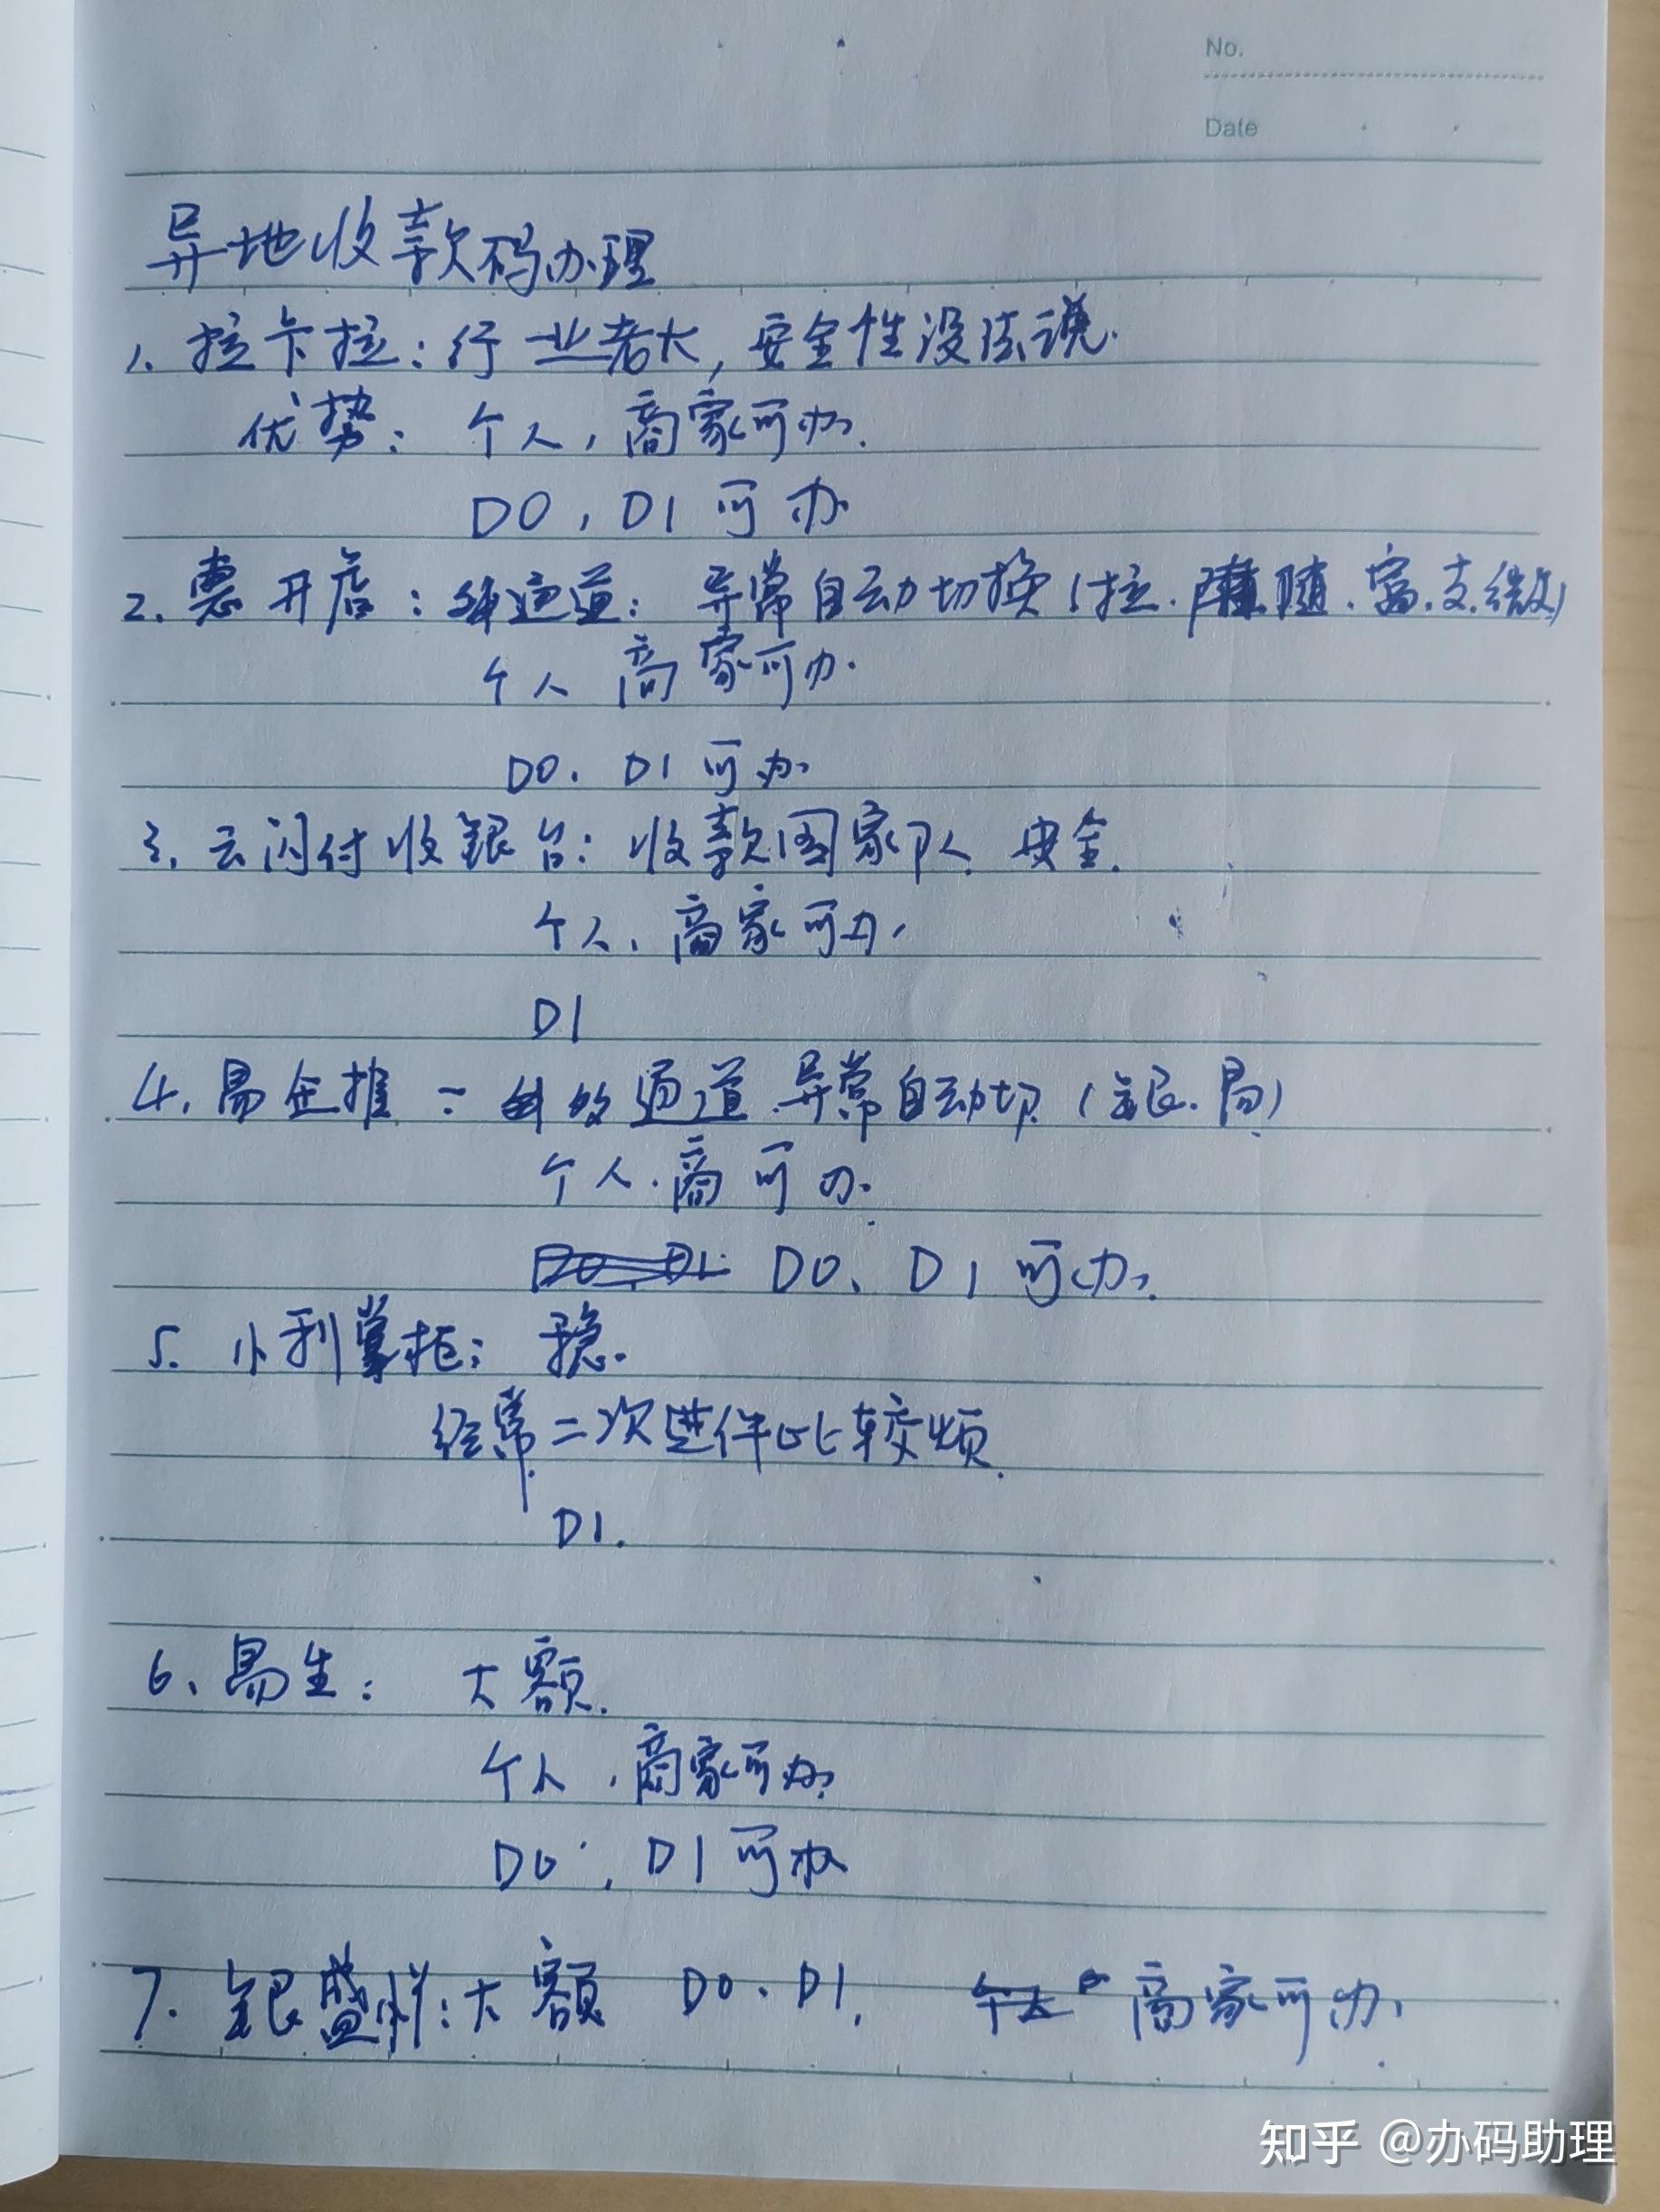 No.
Date
异地收款码办理
1、拉卡拉：行业老大，安全性没法说.
优势：个人，商家可办.
D0，D1可办
2、惠开店：通道：异常自动切换（拉.随.富.支.微）
个人 商家可办.
D0、D1可办
3、云闪付收银台：收款国家队、安全.
个人、商家可办,
D1
4、易企推：通道.异常自动切（银.局）
个人.商可办.
D0、D1可办、
5、小利掌柜：稳.
经常二次进件比较烦.
D1.
6、易生：大额.
个人，商家可办.
D0，D1可办
7、银盛：大额 D0、D1. 商家可办,
知乎 @办码助理